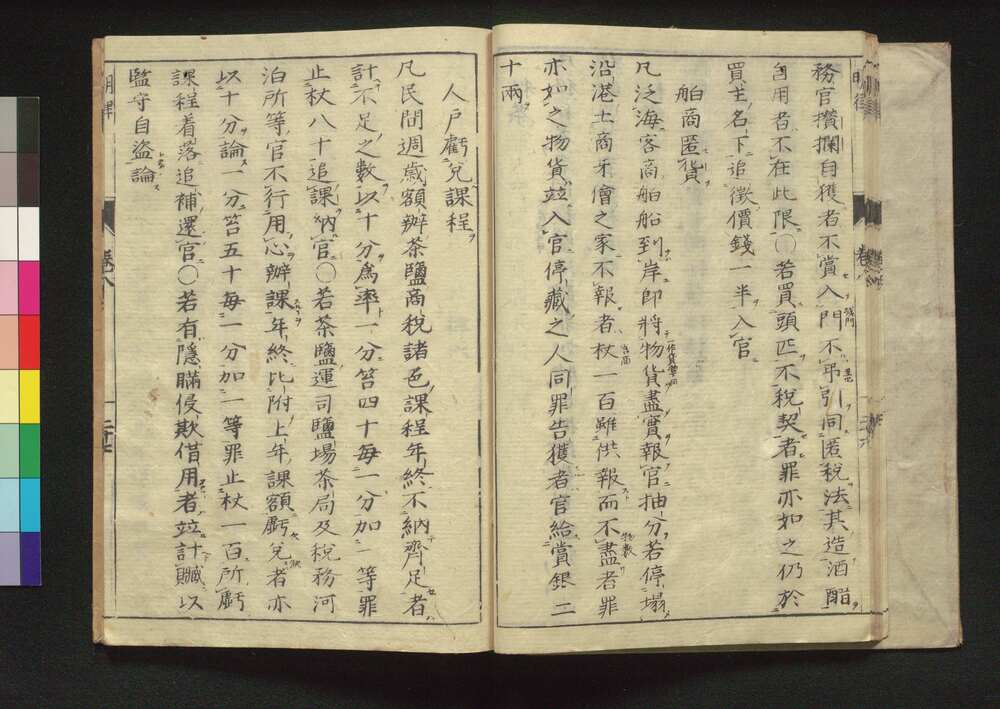 務官攢攔自獲者不賞入門不弔引同匿税法其造酒醋
自用者不在此限○若買頭匹不税契者罪亦如之仍於
買主名下追徴價錢一半入官
舶商匿貨
凡泛海客商舶船到岸即將物貨盡實報官抽分若停塌
沿港土商牙儈之家不報者杖一百雖供報而不盡者罪
亦如之物貨竝入官停藏之人同罪告獲者官給賞銀二
十兩
人戸虧兌課程
凡民間週歳額辦茶鹽商税諸色課程年終不納齊足者
計不足之數以十分爲率一分笞四十毎一分加一等罪
止杖八十追課納官○若茶鹽運司鹽場茶局及税務河
泊所等官不行用心辦課年終比附上年課額虧兌者亦
以十分論一分笞五十毎一分加一等罪止杖一百所虧
課程着落追補還官○若有隱瞞侵欺借用者竝計贓以
監守自盗論
明律
卷八